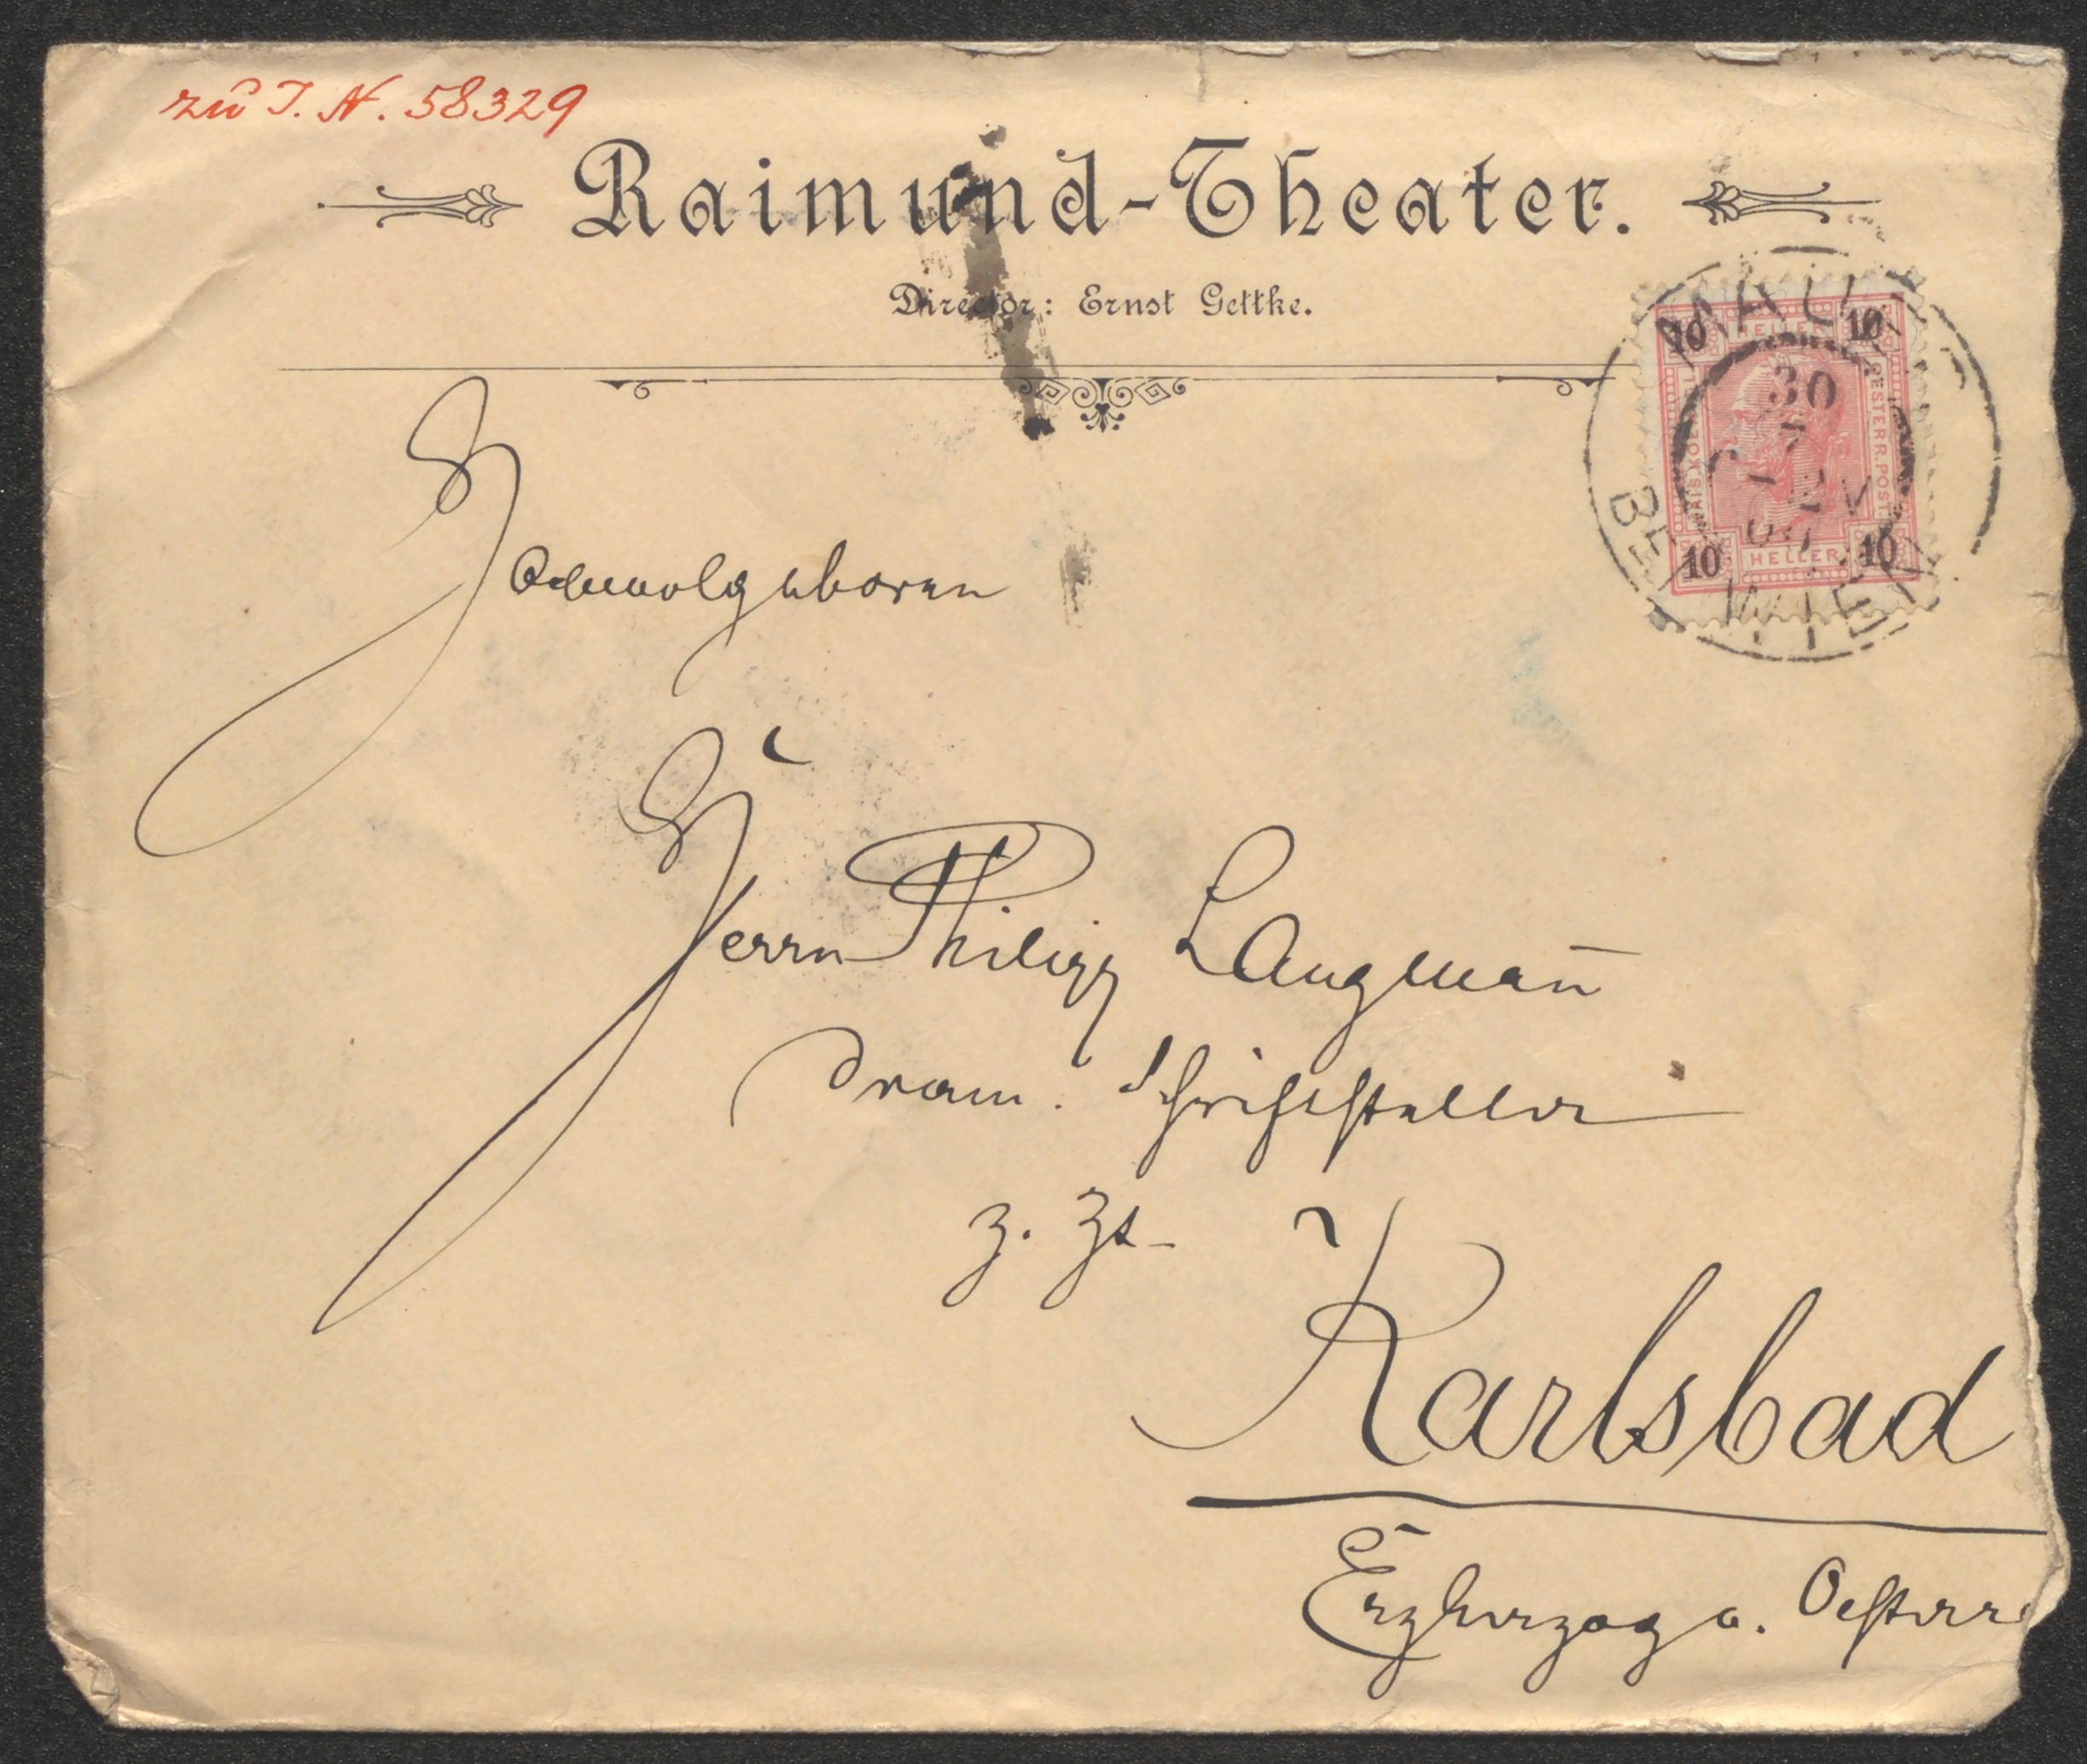 zu I. N. 58329
Raimund-Theater.
Director: Ernst Gettke.
MAU
BEI WIEN
30
10 HELLER 10
OESTERR. POST
10 HELLER 10
Hochwolgeboren
Herrn Philipp Langmann̄
dram. Schriftsteller
z. Zt.
Karlsbad
Erzherzog v. Oesterre